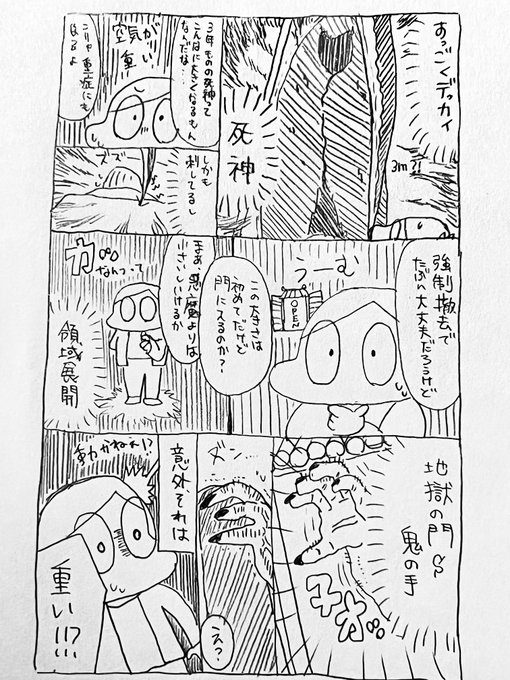 すっごくデッカイ
3m?!
死神
空気が
重い
3年ものの死神って
こんなに大きくなるもん
なんだな…
こりゃ重症にも
なるよ
しかも
刺してるし
ズズ
強制撤去で
たぶん大丈夫だろうけど
うーむ
OPEN
この大きさは
初めてだけど
門に入るのか?
まあ、悪魔よりは
小さいしいけるか
なんつって
領域展開
地獄の門
鬼の手
ズン
え?
意外、それは
動かねぇ!?
重い!!?